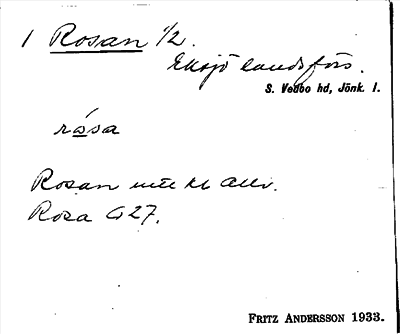 1 Rosan 1/2.
Eksjö landsförs.
S. Vedbo hd, Jönk. l.
råsa
Rosan
Rosa G27.
FRITZ ANDERSSON 1933.